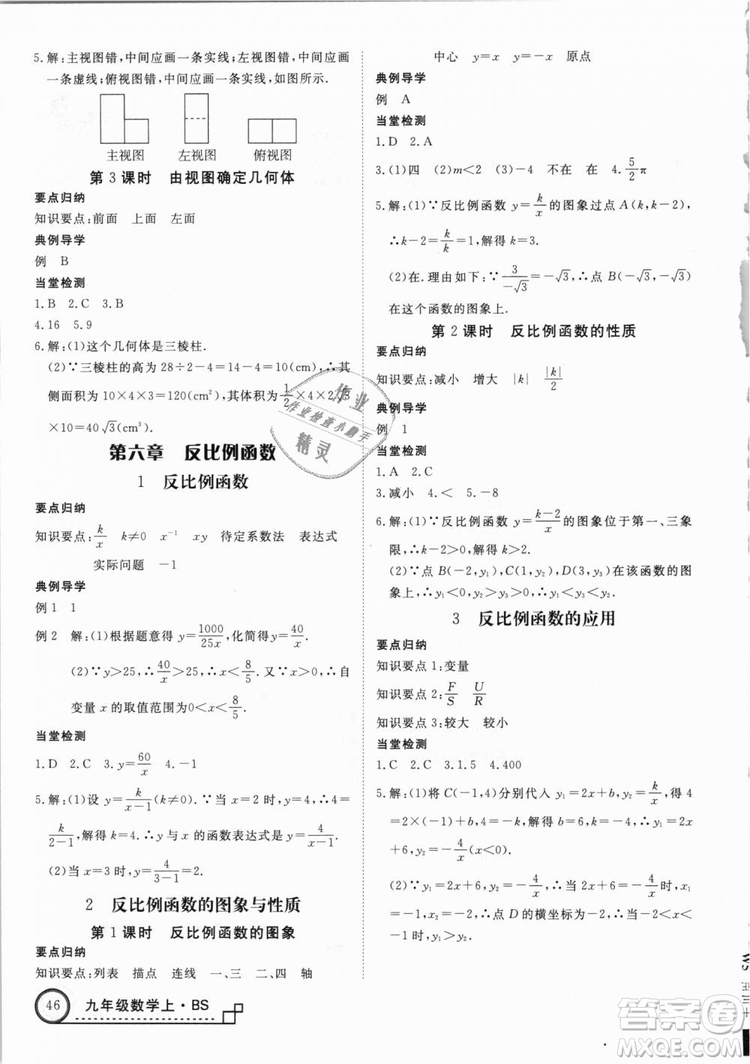 5.解：主视图错，中间应画一条实线；左视图错，中间应画一条虚线；俯视图错，中间应画一条实线，如图所示．
主视图 左视图 俯视图
第3课时 由视图确定几何体
要点归纳
知识要点：前面 上面 左面
典例导学
例 B
当堂检测
1.B 2.C 3.B
4.16 5.9
6.解：(1)这个几何体是三棱柱．
(2)∵三棱柱的高为28÷2－10＝4(cm)，∴其
侧面积为10×4×3＝120(cm²)，其体积为1/2×4×2√3
×10＝40√3(cm³)．
第六章 反比例函数
1 反比例函数
要点归纳
知识要点：k/x k≠0 x⁻¹ xy 待定系数法 表达式
实际问题 －1
典例导学
例1 1
例2 解：(1)根据题意得y＝1000/25x，化简得y＝40/x．
(2)∵y＞25，∴40/x＞25，∴x＜8/5，∴自
变量x的取值范围为0＜x＜8/5．
当堂检测
1.D 2.C 3.y＝60/x 4.－1
5.解：(1)设y＝k/(x－1)(k≠0)．当x＝2时，y＝4，∴
k/(2－1)＝4，∴k＝4，∴y与x的函数表达式是y＝4/(x－1)．
(2)当x＝3时，y＝4/(3－1)＝2．
2 反比例函数的图象与性质
第1课时 反比例函数的图象
要点归纳
知识要点：列表 描点 连线 一、三 二、四 轴
46 九年级数学上·BS
中心 y＝x y＝－x 原点
典例导学
例 A
当堂检测
1.D 2.A
3.(1)四 (2)m＜2 (3)－4 不在 在 4.5/2π
5.解：(1)∵反比例函数y＝k/x的图象过点A(k，k－2)，
∴k－2＝k/k，∴k＝3．
(2)在．理由如下：∵3/－√3＝－√3，∴点B
在这个函数的图象上．
第2课时 反比例函数的性质
要点归纳
知识要点：减小 增大 |k| |k|/2
典例导学
例 1
当堂检测
1.A 2.D
3.减小 4.＜ 5.－8
6.解：(1)∵反比例函数y＝(k－2)/x的图象位于第一、三象
限，∴k－2＞0，∴k＞2．
(2)∵点B(－2，y₁)，C(1，y₂)，D(3，y₃)在该函数的图
象上，∴y₁＜y₃＜y₂．
3 反比例函数的应用
要点归纳
知识要点1：变量
知识要点2：F/S U/R
知识要点3：较大 较小
当堂检测
1.C 2.C 3.1.5 4.400
5.解：(1)将C(－1，4)分别代入y₁＝2x＋b，k/x，得4
作业
作业检查小助手
精灵
答案圈
MXQE.COM